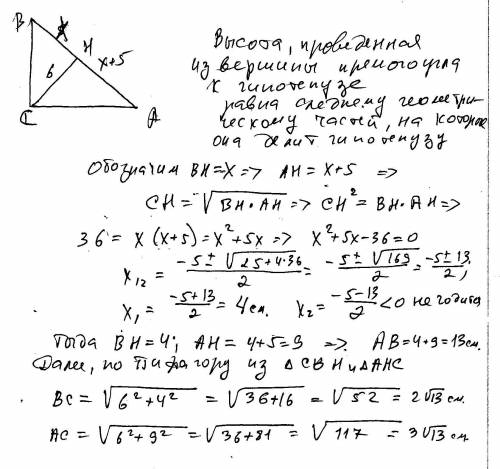 B
x
H
6
x+5
C
A
Высота, проведенная
из вершины прямого угла
к гипотенузе
равна среднему геометри-
ческому частей, на которое
она делит гипотенузу
Обозначим BH=x => AH=x+5 =>
CH=√BH·AH => CH²=BH·AH=>
36= x(x+5)=x²+5x=> x²+5x-36=0
x₁₂ = -5±√25+4·36/2 = -5±√169/2 = -5±13/2,
x₁ = -5+13/2 = 4см. x₂ = -5-13/2 <0 не годится
Тогда BH=4, AH=4+5=9 => AB=4+9=13см.
Далее, по Пифагору из ΔCBH и ΔAHC
BC = √6²+4² = √36+16 = √52 = 2√13 см.
AC = √6²+9² = √36+81 = √117 = 3√13 см